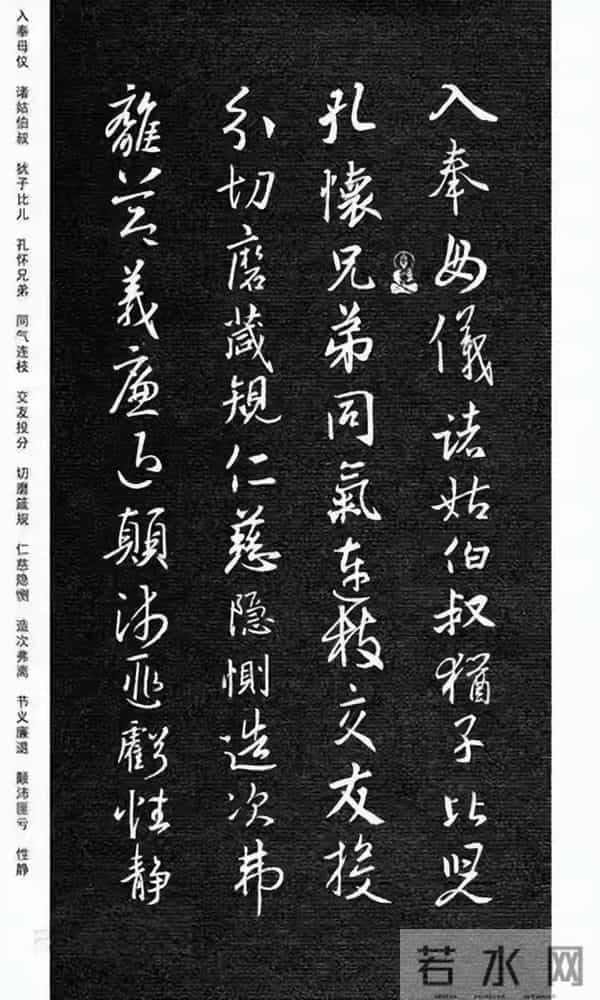 入奉母儀諸姑伯叔猶子比兒
孔懷兄弟同氣連枝交友投
分切磨箴規仁慈隐惻造次弗
離節義廉退顛沛匪虧性静
入奉母仪 诸姑伯叔 犹子比儿 孔怀兄弟 同气连枝 交友投分 切磨箴规 仁慈隐恻 造次弗离 节义廉退 颠沛匪亏 性静
若水网